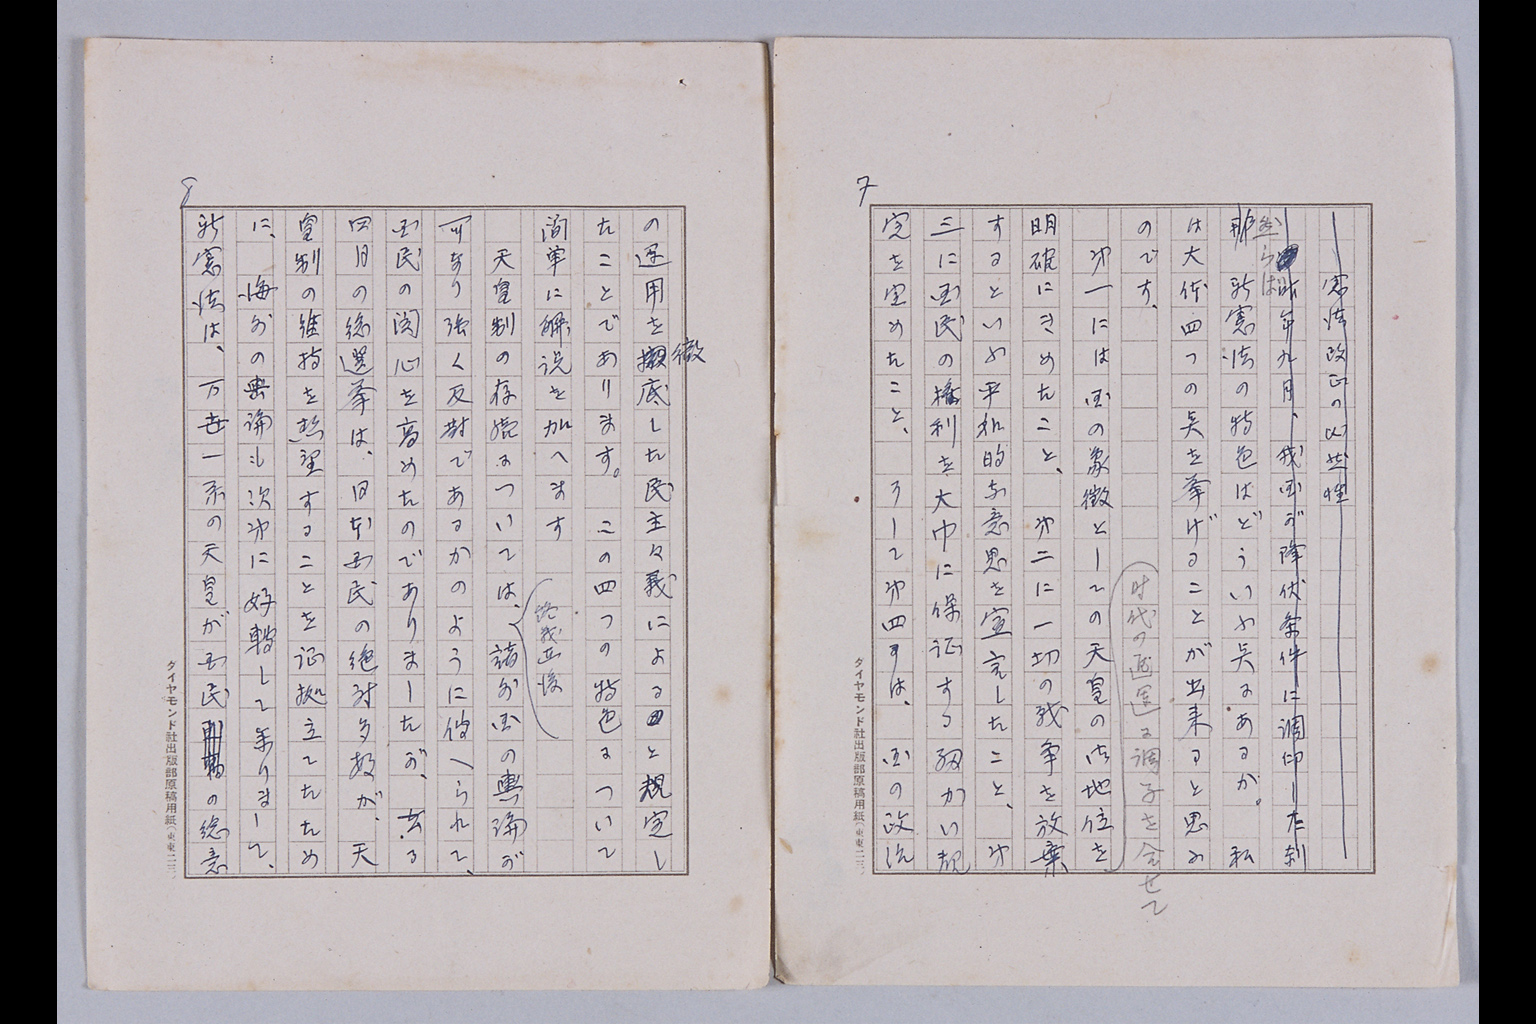 7
憲法改正の必然性
昨年九月、我国が降伏条件に調印した刹
然らば
那 新憲法の特色はどういふ点にあるか。 私
は大体四つの点を挙げることが出来ると思ふ
のです。
時代の進運に調子を合せて
第一には国の象徴としての天皇の御地位を
明確にきめたこと、 第二に一切の戦争を放棄
するといふ平和的な意思を宣言したこと、 第
三に国民の権利を大巾に保証する細かい規
定を定めたこと、 そして第四には、 国の政治
ダイヤモンド社出版部原稿用紙
8
徹
の運用を徹底した民主々義によると規定し
たことであります。 この四つの特色について
簡単に解説を加へます
終戦直後
天皇制の存続については、 諸外国の輿論が
可なり強く反対であるかのように伝へられて、
国民の関心を高めたのでありましたが、
四日の総選挙は、日本国民の絶対多数が、天
皇制の維持を熱望することを証拠立てたため
に、 海外の輿論も次第に好転して参りまして、
新憲法は、万世一系の天皇が国民の総意
ダイヤモンド社出版部原稿用紙